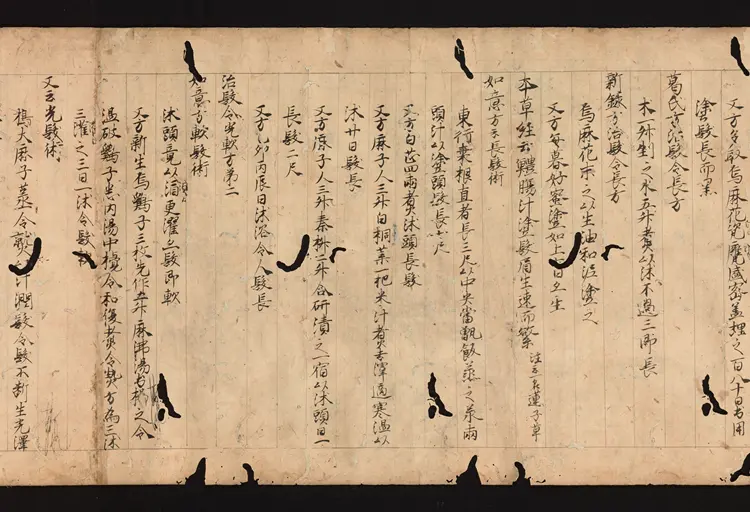 又方多取烏麻花瓷甕盛密蓋埋之百八十日出用
塗髮長而黑
葛氏方治髮令長方
术升剉之水五升煮以沐不過三即長
新錄方治髮令長方
烏麻花末之以生油和泥塗之
又方每暮好蜜塗如上百日立生
本草經云鱧腸汁塗髮眉生速而繁 注云一名蓮子草
如意方云長髮術
東行棗根直者長三尺以中央當甑飯蒸之承兩
頭汁以塗頭髮長七尺
又方白芷四兩煮沐頭長髮
又方麻子人三升白桐葉一把米汁煮去滓適寒温以
沐廿日髮長
又方麻子人三升秦椒二升合研漬之一宿以沐頭日一
長髮二尺
又方乙卯丙辰日沐浴令人髮長
治髮令光軟方第二
如意方軟髮術
沐頭竟以酒更濯之髮即軟
又方新生烏鷄子三枚先作五升麻沸湯出揚之令
温破鷄子悉内湯中攪令和復煮令熟分為三沐
三濯之三日一沐令髮軟
又云光髮術
擣大麻子蒸令熟以汁潤髮令髮不斷生光澤